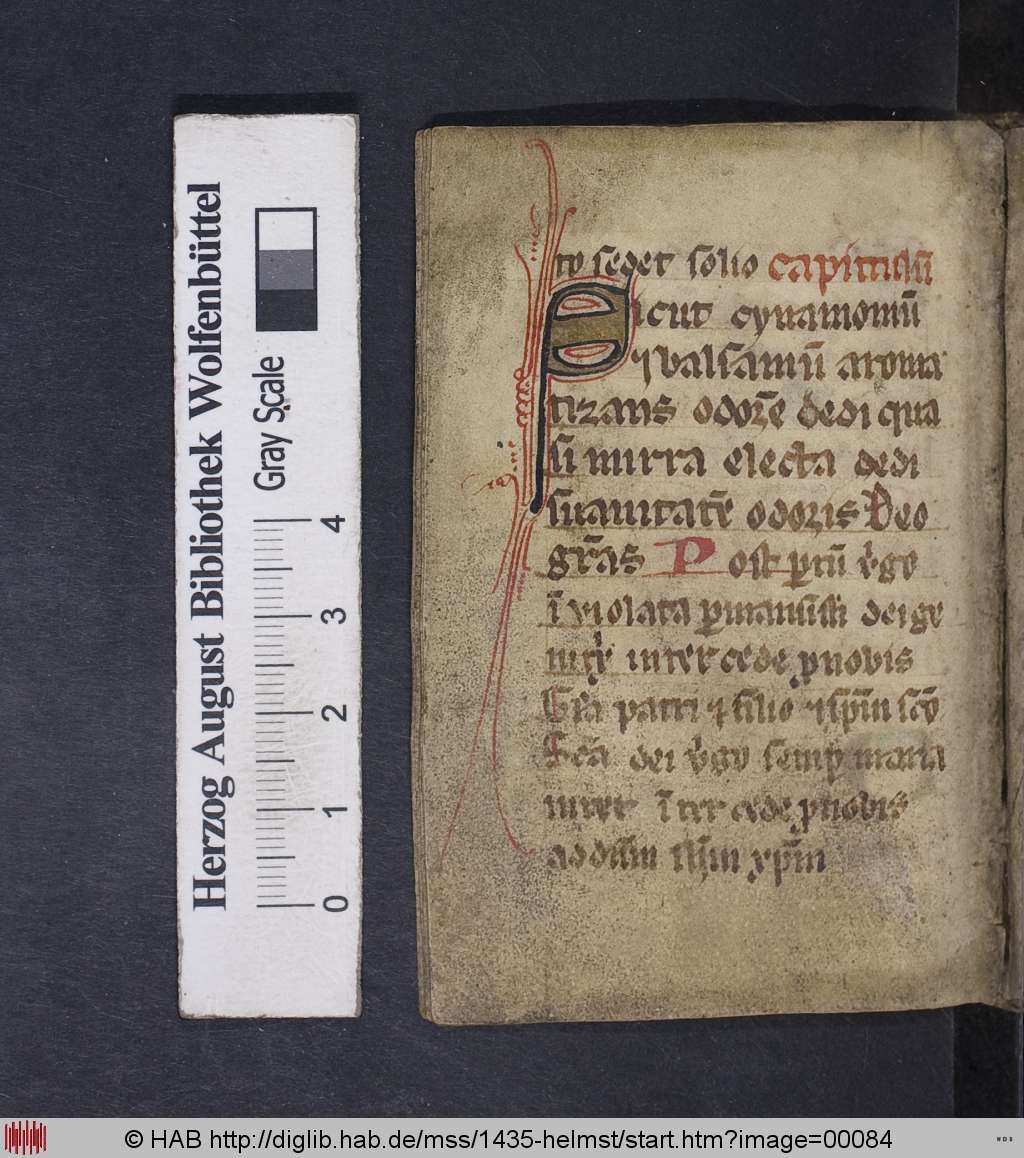 Herzog August Bibliothek Wolfenbüttel
Gray Scale
0 1 2 3 4
to sedet solio capitulū
Sicut cynamomū
⁊ balsamū aroma
tizans odorē dedi qua
si mirra electa dedi
suauitatē odoris Deo
grās Post partū v̓go
īuiolata ꝑmansisti dei ge
nitͥx intercede ꝓ nobis
Glā patri ⁊ filio ⁊ spm̄ scō
Scā dei v̓go semꝑ maria
inter īter cede ꝓ nobis
ad dn̄m ihm̄ xp̄m
© HAB http://diglib.hab.de/mss/1435-helmst/start.htm?image=00084